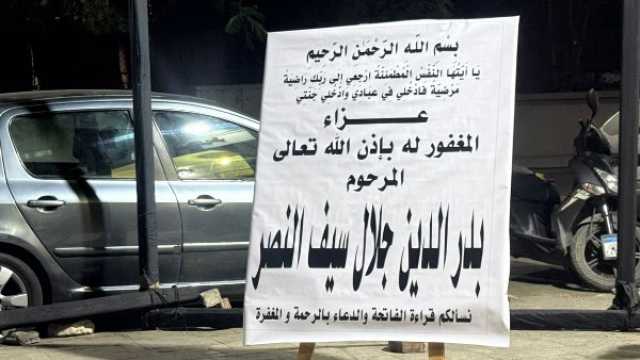 بسْم اللّه الرّحْمَن الرّحيم
يَا أيَتُهَا النّفْسُ الْمُطْمَئنّةُ ارْجَعِي إلى رَبّكِ رَاضِيَةً
مَرْضِيّةً فَادْخُلي في عِبَادي وَادْخُلي جَنّتي
عـــزاء
المغفور له بإذن الله تعالى
المرحوم
بدر الدين جلال سيف النصر
نسألكم قراءة الفاتحة والدعاء بالرحمة و المغفرة